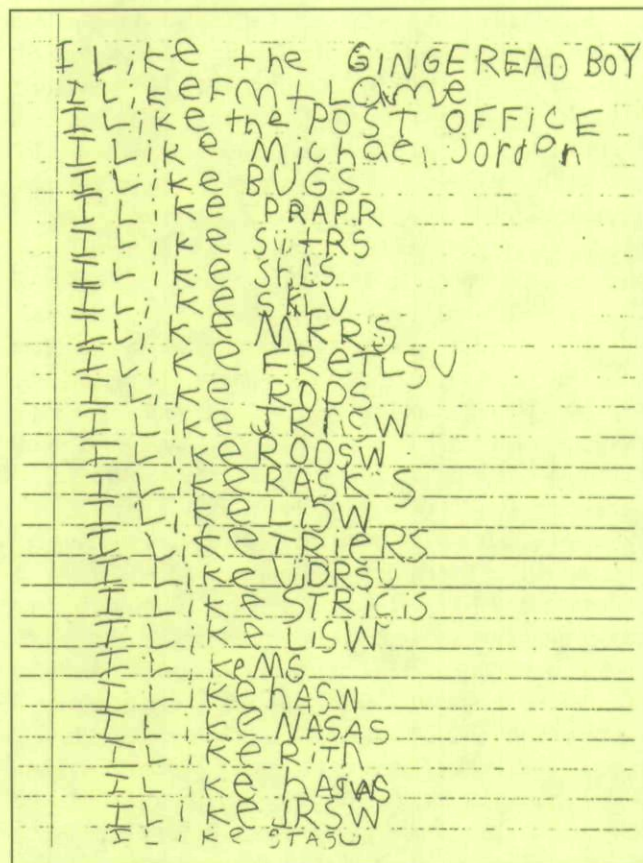 I Like the GINGEREAD BOY
I Like FMt LOme
I Like the POST OFFiCE
I Like Michael Jordon
I Like BUGS
I Like PRAPR
I Like SiitRS
I Like ShLS
I Like SKLV
I Like MKRS
I Like FReTLSU
I Like ROPS
I Like JRhCW
I Like RODSW
I Like RASKS
I Like LiSW
I Like TRieRS
I Like ViDRSU
I Like STRiCiS
I Like LiSW
I Like MS
I Like hASW
I Like NASAS
I Like RiTh
I Like hASWS
I Like JRSW
I Like STASU